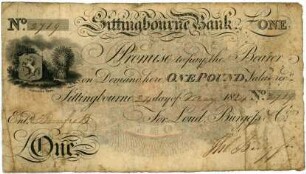 No. 2919 Sittingbourne Bank. ONE
I Promise to pay the Bearer
on Demand here ONE POUND Value recd.
Sittingbourne 24 day of May 1824
For Loud, Burgess & Co.
Entd.
One